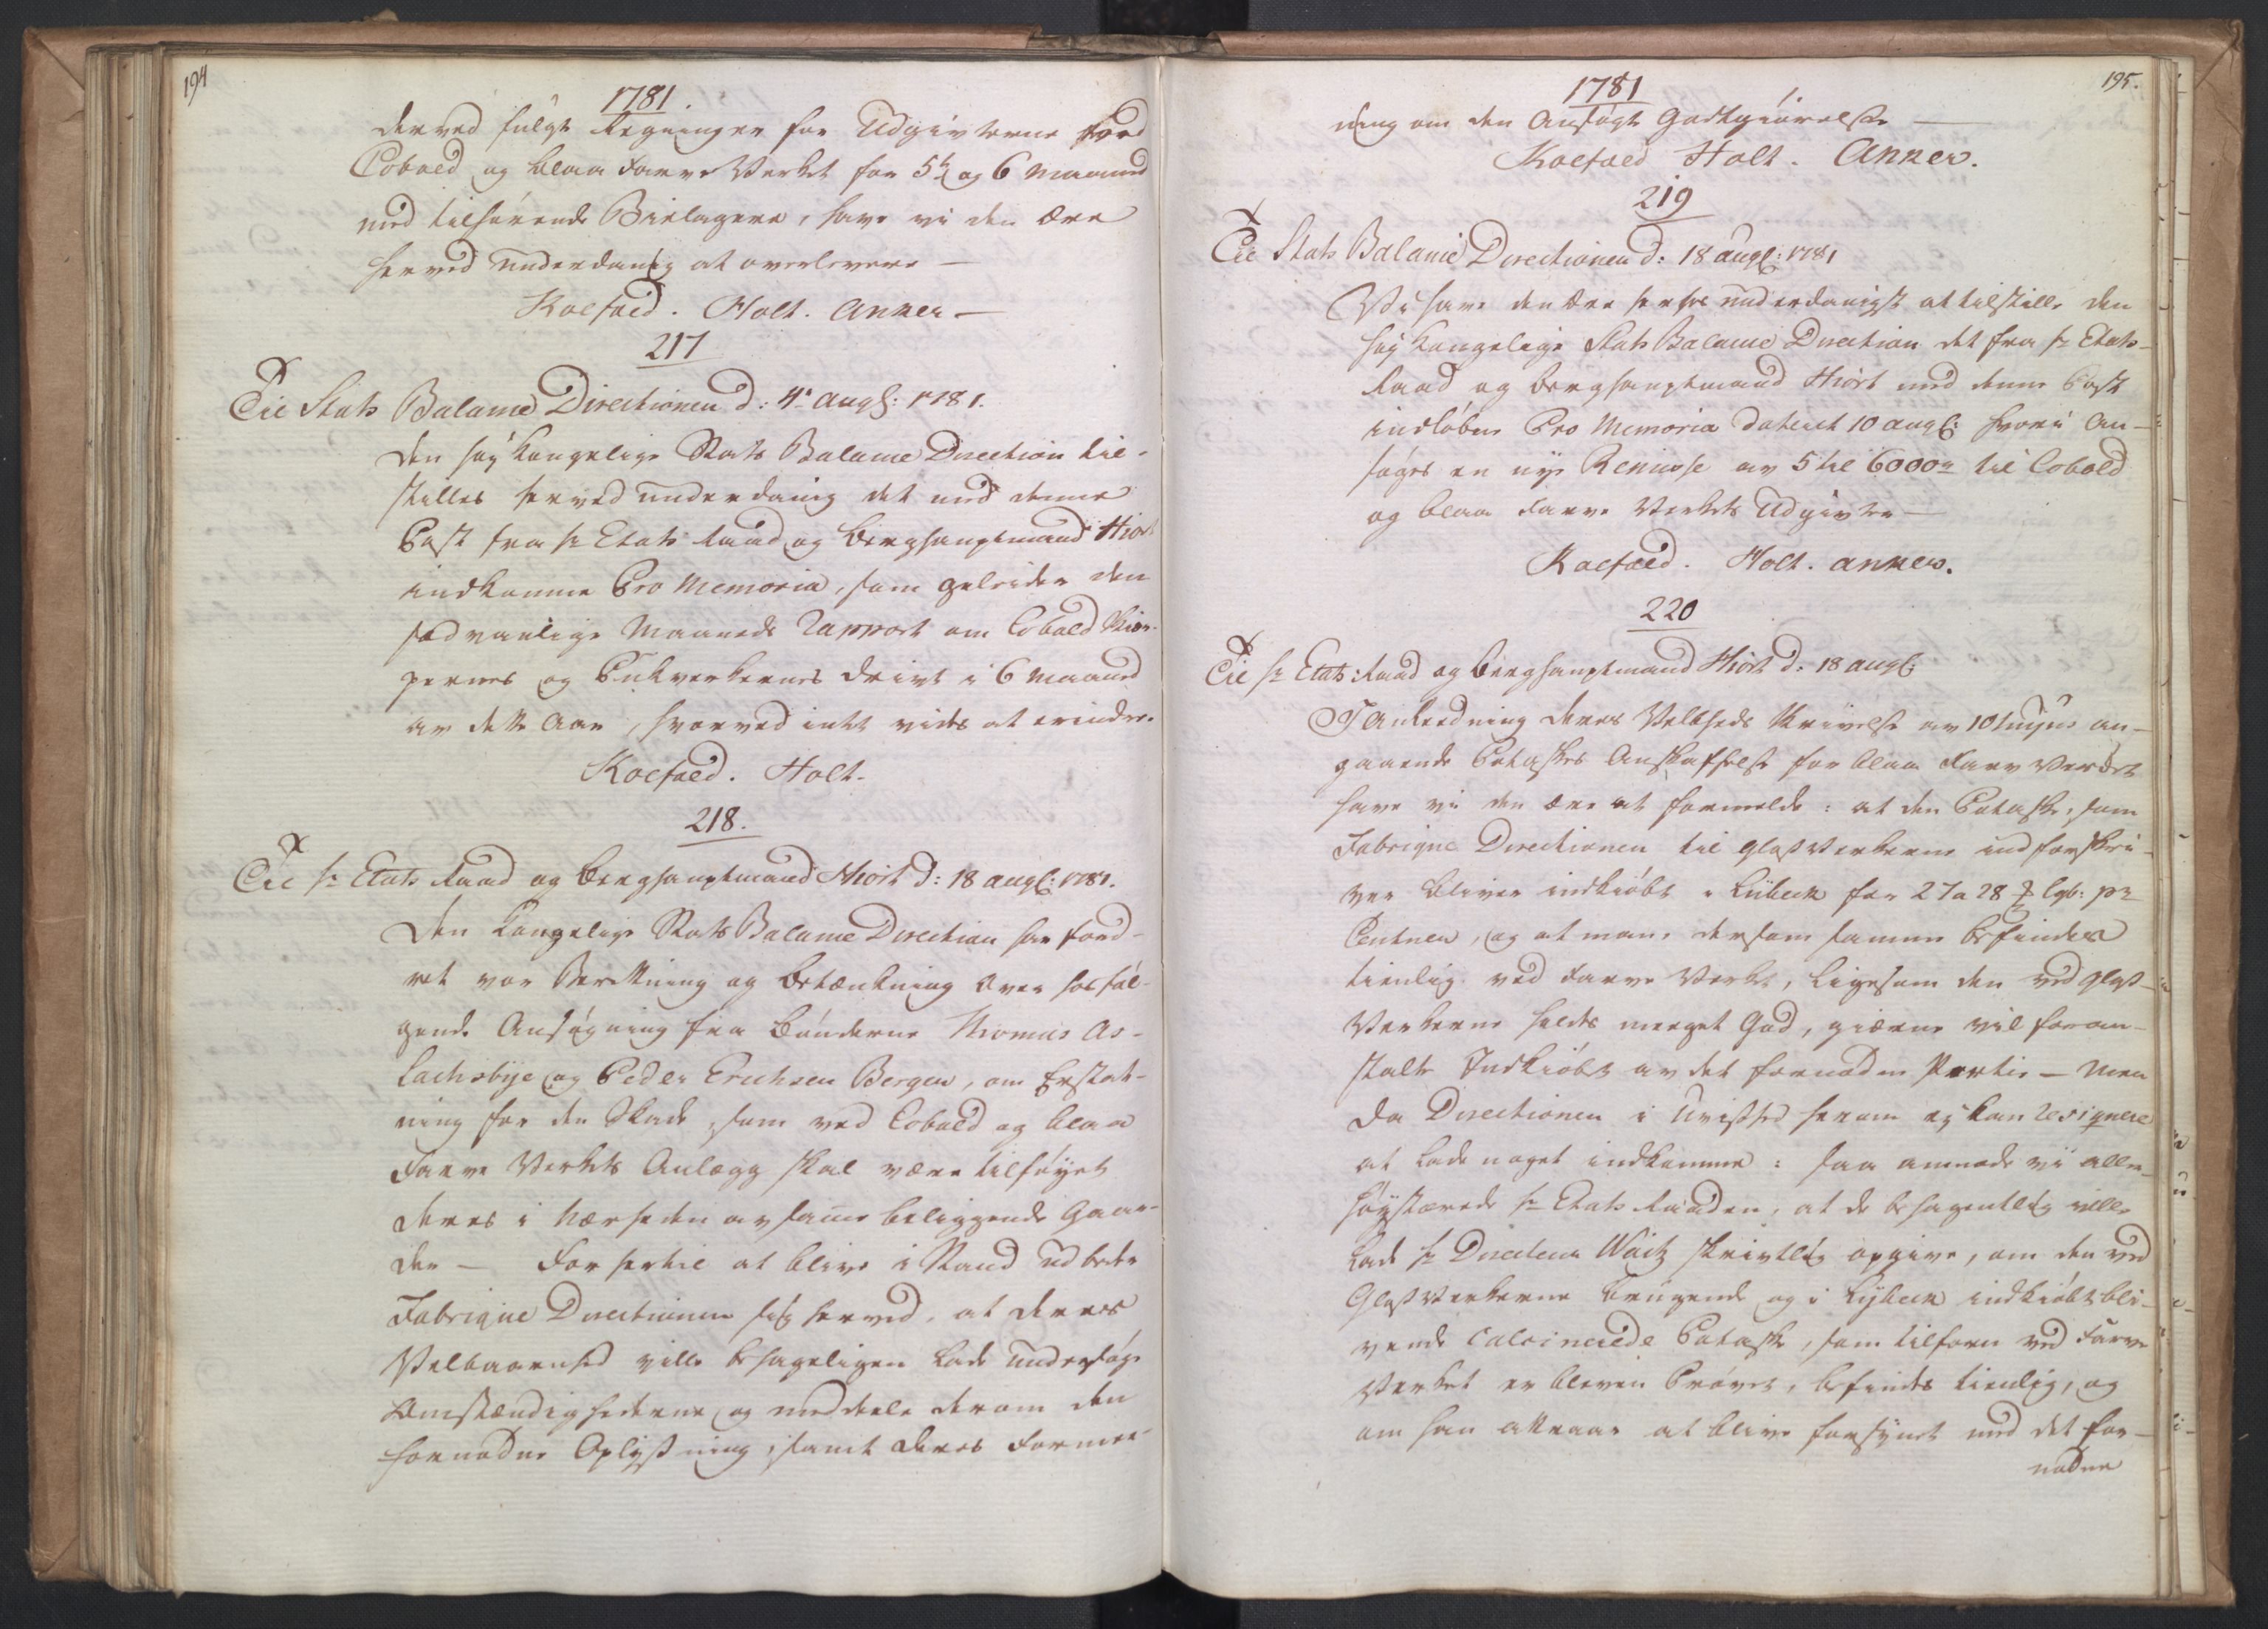 194
1781.
derved fulgte Regninger for Udgivterne ved
Cobold og blaa Farve Verket for 5te og 6 Maaned
med tilhørende Bielagere, have vi den Ære
herved underdanig at overlevere —
Koefoed. Holt. Anker —
217
Til Stats Balance Directionen d: 4de augs: 1781.
Den høy Kongelige Stats Balance Direction til-
stilles herved underdanig det med denne
Post fra hr Etats Raad og Berghauptmand Hiort
indkomne Pro Memoria, som geleider den
sædvanlige Maaneds Rapport om Cobold Skier-
pernes og Pukverkernes Drivt i 6 Maaned
av dette Aar, hvorved intet vides at erindre.
Koefoed. Holt.
218.
Til hr Etats Raad og Berghauptmand Hiort d: 18 augs: 1781.
Den Kongelige Stats Balance Direction har ford-
ret vor Berettning og Betænkning over hosføl-
gende Ansøgning fra Bønderne Thomas As-
lachsbye og Peder Erichsen Bergen, om Erstat-
ning for den Skade, som ved Cobold og blaa
Farve Verkets Anlægg skal være tilføyet
deres i Nærheden av samme beliggende Gaar-
der — For hertil at blive i Stand udbeder
Fabrique Directionen sig herved, at Deres
Velbaarenhed ville behageligen lade undersøge
Omstændighederne og meddeele derom den
fornødne Oplysning, samt Deres Formee-
195.
1781
ning om den Ansøgte Godtgiørelse —
Koefoed Holt. Anker.
219
Til Stats Balance Directionen d: 18 augs: 1781
Vi have den Ære herhos underdanigst at tilstille den
høy Kongelige Stats Balance Direction det fra hr Etats-
Raad og Berghauptmand Hiort med denne Post
indløbne Pro Memoria dateret 10 augs: hvori an-
søges en nye Remisse av 5 til 6000 til Cobold
og blaa Farve Verkets Udgivter —
Koefoed. Holt. Anker.
220
Til hr Etats Raad og Berghauptmand Hiort d: 18 augs:
I Anledning Deres Velbheds Skrivelse av 10 hujus an-
gaaende Potaskes Anskaffelse for blaa Farve Verket
have vi den Ære at formelde: at den Potaske, som
Fabrique Directionen til Glas Verkerne indforskri-
ver bliver indkiøbt i Lübeck for 27 a 28 lyb: pr
Centner, og at man, dersom samme befindes
tienlig ved Farve Verket, ligesom den ved Glas-
Verkerne holdes meeget God, gierne vil foran-
stalte Indkiøbet av det fornødne Partie — Men
da Directionen i Uvished herom ey kan resiqvere
at lade noget indkomme: saa anmode vi aller-
høystærede hr Etats Raaden, at de behagentlig ville
lade hr Directeur Waitz skrivtlig opgive, om den ved
Glas Verkerne brugende og i Lybeck indkiøbt bli-
vende calcinerede Potaske, som tilforn ved Farve
Verket er bleven Prøvet, befindes tienlig, og
om han attraar at blive forsynet med det for-
nødne